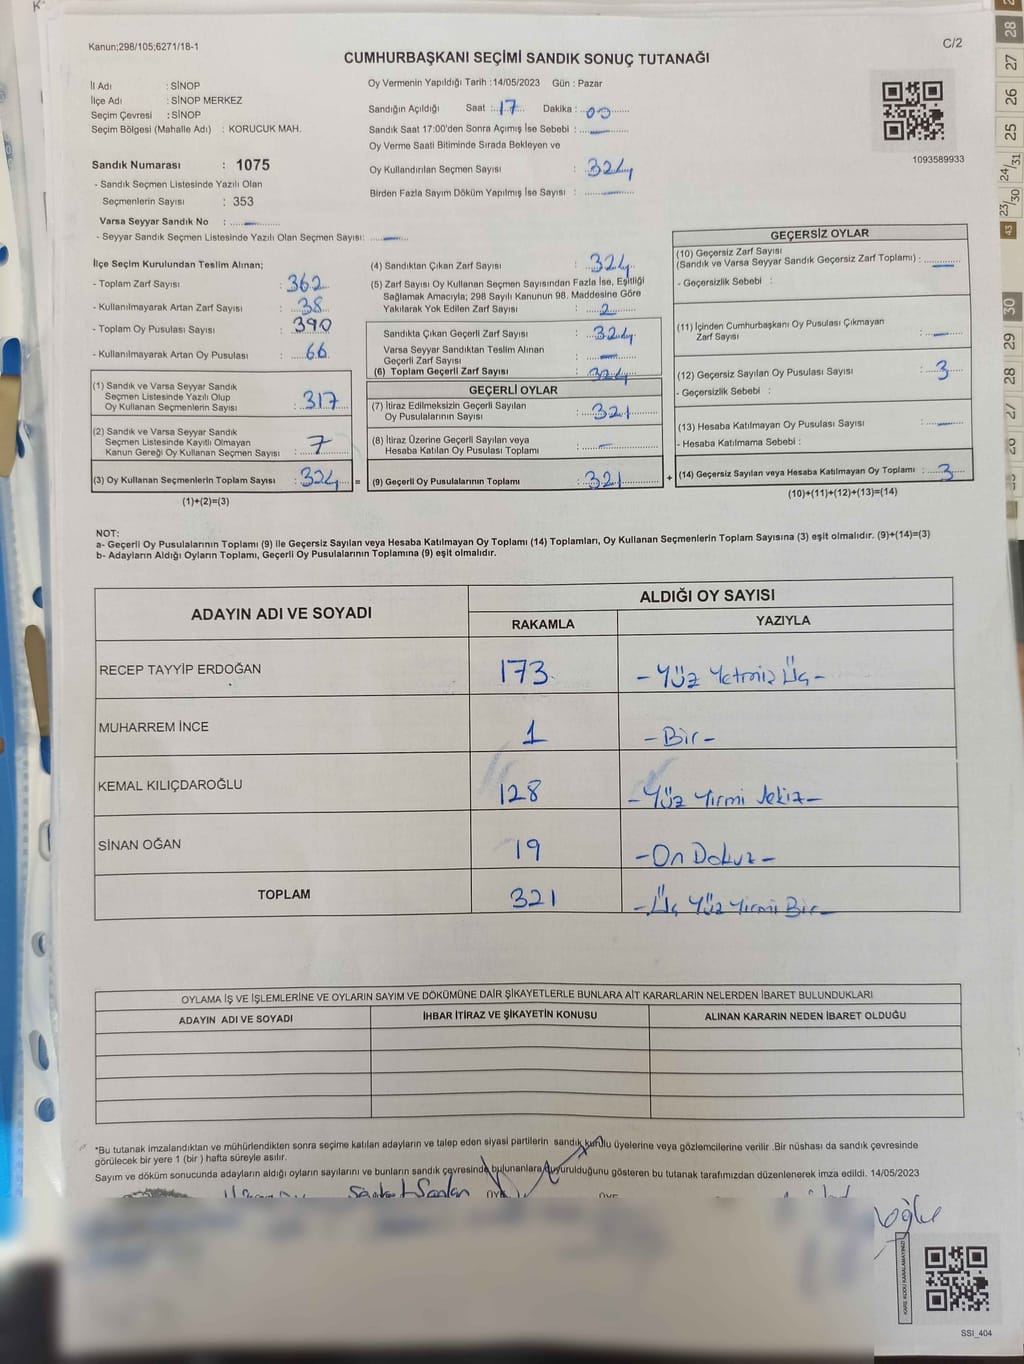 Kanun;298/105;6271/18-1
C/2
CUMHURBAŞKANI SEÇİMİ SANDIK SONUÇ TUTANAĞI
İl Adı : SİNOP
İlçe Adı : SİNOP MERKEZ
Seçim Çevresi : SİNOP
Seçim Bölgesi (Mahalle Adı) : KORUCUK MAH.
Sandık Numarası : 1075
- Sandık Seçmen Listesinde Yazılı Olan
Seçmenlerin Sayısı : 353
Varsa Seyyar Sandık No : —
- Seyyar Sandık Seçmen Listesinde Yazılı Olan Seçmen Sayısı: —
Oy Vermenin Yapıldığı Tarih :14/05/2023 Gün : Pazar
Sandığın Açıldığı Saat : 17 Dakika : 00
Sandık Saat 17:00'den Sonra Açımış İse Sebebi : —
Oy Verme Saati Bitiminde Sırada Bekleyen ve
Oy Kullandırılan Seçmen Sayısı : 324
Birden Fazla Sayım Döküm Yapılmış İse Sayısı : —
1093589933
İlçe Seçim Kurulundan Teslim Alınan;
- Toplam Zarf Sayısı : 362
- Kullanılmayarak Artan Zarf Sayısı : 38
- Toplam Oy Pusulası Sayısı : 390
- Kullanılmayarak Artan Oy Pusulası : 66
(1) Sandık ve Varsa Seyyar Sandık
Seçmen Listesinde Yazılı Olup
Oy Kullanan Seçmenlerin Sayısı : 317
(2) Sandık ve Varsa Seyyar Sandık
Seçmen Listesinde Kayıtlı Olmayan
Kanun Gereği Oy Kullanan Seçmen Sayısı : 7
(3) Oy Kullanan Seçmenlerin Toplam Sayısı : 324 =
(1)+(2)=(3)
(4) Sandıktan Çıkan Zarf Sayısı : 324
(5) Zarf Sayısı Oy Kullanan Seçmen Sayısından Fazla İse, Eşitliği
Sağlamak Amacıyla; 298 Sayılı Kanunun 98. Maddesine Göre
Yakılarak Yok Edilen Zarf Sayısı :
Sandıkta Çıkan Geçerli Zarf Sayısı : 324
Varsa Seyyar Sandıktan Teslim Alınan
Geçerli Zarf Sayısı : —
(6) Toplam Geçerli Zarf Sayısı : 324
GEÇERLİ OYLAR
(7) İtiraz Edilmeksizin Geçerli Sayılan
Oy Pusulalarının Sayısı : 321
(8) İtiraz Üzerine Geçerli Sayılan veya
Hesaba Katılan Oy Pusulası Toplamı : —
(9) Geçerli Oy Pusulalarının Toplamı : 321 +
GEÇERSİZ OYLAR
(10) Geçersiz Zarf Sayısı
(Sandık ve Varsa Seyyar Sandık Geçersiz Zarf Toplamı) : —
- Geçersizlik Sebebi :
(11) İçinden Cumhurbaşkanı Oy Pusulası Çıkmayan
Zarf Sayısı : —
(12) Geçersiz Sayılan Oy Pusulası Sayısı : 3
- Geçersizlik Sebebi :
(13) Hesaba Katılmayan Oy Pusulası Sayısı : —
- Hesaba Katılmama Sebebi :
(14) Geçersiz Sayılan veya Hesaba Katılmayan Oy Toplamı : 3
(10)+(11)+(12)+(13)=(14)
NOT:
a- Geçerli Oy Pusulalarının Toplamı (9) ile Geçersiz Sayılan veya Hesaba Katılmayan Oy Toplamı (14) Toplamları, Oy Kullanan Seçmenlerin Toplam Sayısına (3) eşit olmalıdır. (9)+(14)=(3)
b- Adayların Aldığı Oyların Toplamı, Geçerli Oy Pusulalarının Toplamına (9) eşit olmalıdır.
ADAYIN ADI VE SOYADI
ALDIĞI OY SAYISI
RAKAMLA YAZIYLA
RECEP TAYYİP ERDOĞAN 173 - Yüz Yetmiz Üç -
MUHARREM İNCE 1 - Bir -
KEMAL KILIÇDAROĞLU 128 - Yüz Yirmi Sekiz -
SİNAN OĞAN 19 - On Dokuz -
TOPLAM 321 - Üç Yüz Yirmi Bir -
OYLAMA İŞ VE İŞLEMLERİNE VE OYLARIN SAYIM VE DÖKÜMÜNE DAİR ŞİKAYETLERLE BUNLARA AİT KARARLARIN NELERDEN İBARET BULUNDUKLARI
ADAYIN ADI VE SOYADI İHBAR İTİRAZ VE ŞİKAYETİN KONUSU ALINAN KARARIN NEDEN İBARET OLDUĞU
*Bu tutanak imzalandıktan ve mühürlendikten sonra seçime katılan adayların ve talep eden siyasi partilerin sandık kurulu üyelerine veya gözlemcilerine verilir .Bir nüshası da sandık çevresinde
görülecek bir yere 1 (bir ) hafta süreyle asılır.
Sayım ve döküm sonucunda adayların aldığı oyların sayılarını ve bunların sandık çevresinde bulunanlara duyurulduğunu gösteren bu tutanak tarafımızdan düzenlenerek imza edildi. 14/05/2023
KARE KODU KARALAMAYINIZ!
SSI_404